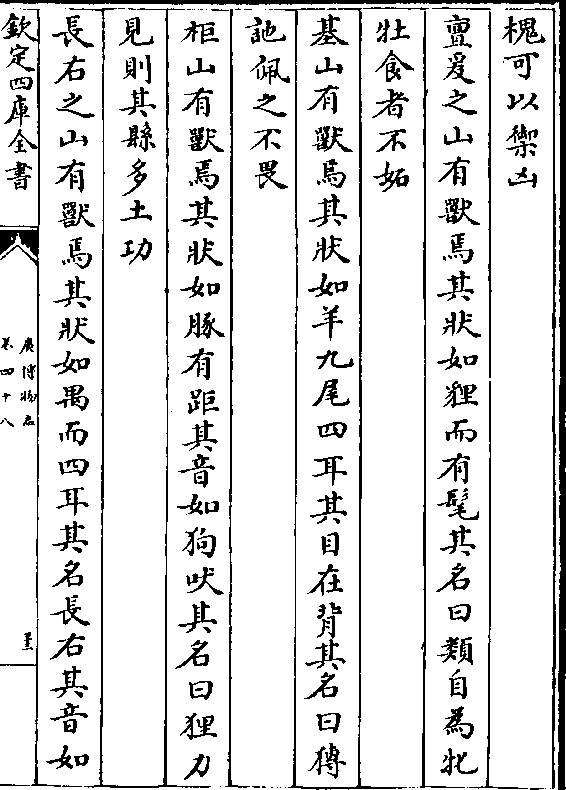 槐可以禦凶
亶爰之山有獸焉其狀如貍而有髦其名曰類自為牝
牡食者不妬
基山有獸焉其狀如羊九尾四耳其目在背其名曰猼
訑佩之不畏
柜山有獸焉其狀如豚有距其音如狗吠其名曰狸力
見則其縣多土功
長右之山有獸焉其狀如禺而四耳其名長右其音如
欽定四庫全書
廣博物志
卷四十八